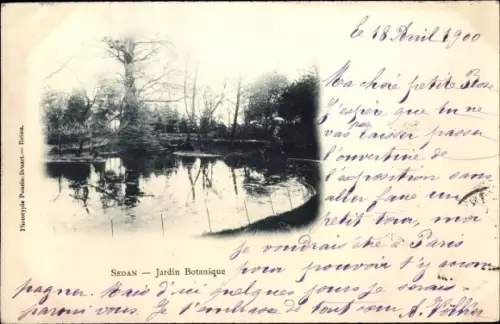 le 18 Avril 1900
Ma chère petite Rose
J'espère que tu ne
vas pas laisser passer
l'ouverture de
l'exposition sans
aller faire un
petit tour, moi
Je voudrais être à Paris
pour pouvoir t'y accom
pagner. Mais d'ici quelques jours je serais
parmi vous. Je t'embrasse de tout cœur
SEDAN — JARDIN BOTANIQUE
Phototypie